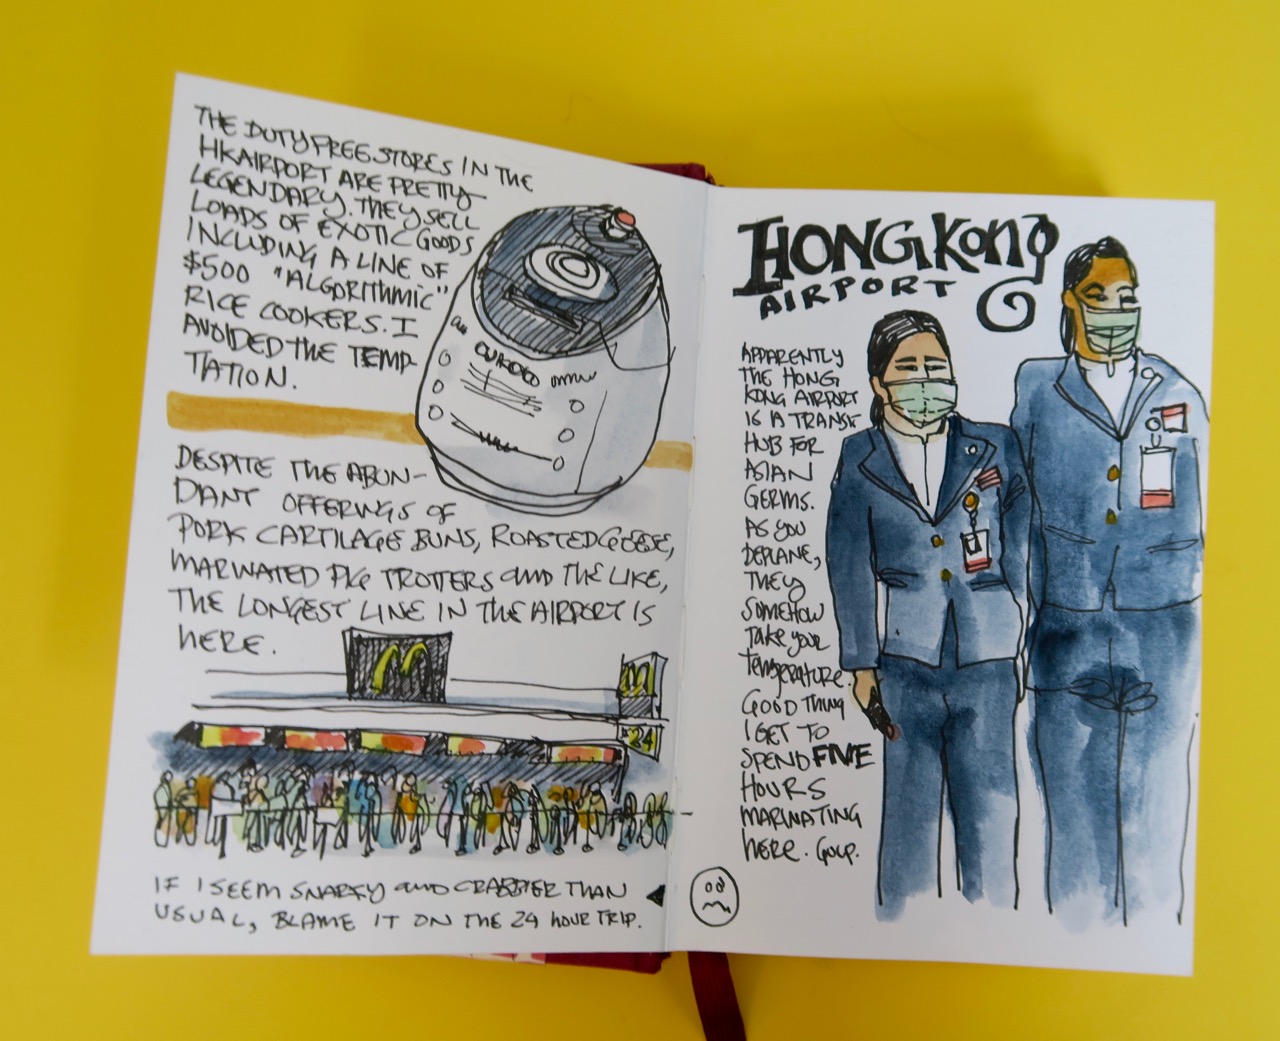 THE DUTY FREE STORES IN THE
HK AIRPORT ARE PRETTY
LEGENDARY. THEY SELL
LOADS OF EXOTIC GOODS
INCLUDING A LINE OF
$500 "ALGORITHMIC"
RICE COOKERS. I
AVOIDED THE TEMP-
TATION.
CUCKOO
DESPITE THE ABUN-
DANT OFFERINGS OF
PORK CARTILAGE BUNS, ROASTED GEESE,
MARINATED PIG TROTTERS AND THE LIKE,
THE LONGEST LINE IN THE AIRPORT IS
HERE.
M
M
24
IF I SEEM SNARKY AND CRABBIER THAN
USUAL, BLAME IT ON THE 24 HOUR TRIP.
HONG KONG
AIRPORT
APPARENTLY
THE HONG
KONG AIRPORT
IS A TRANSIT
HUB FOR
ASIAN
GERMS.
AS YOU
DEPLANE,
THEY
SOMEHOW
TAKE YOUR
TEMPERATURE.
GOOD THING
I GET TO
SPEND FIVE
HOURS
MARINATING
HERE. GULP.